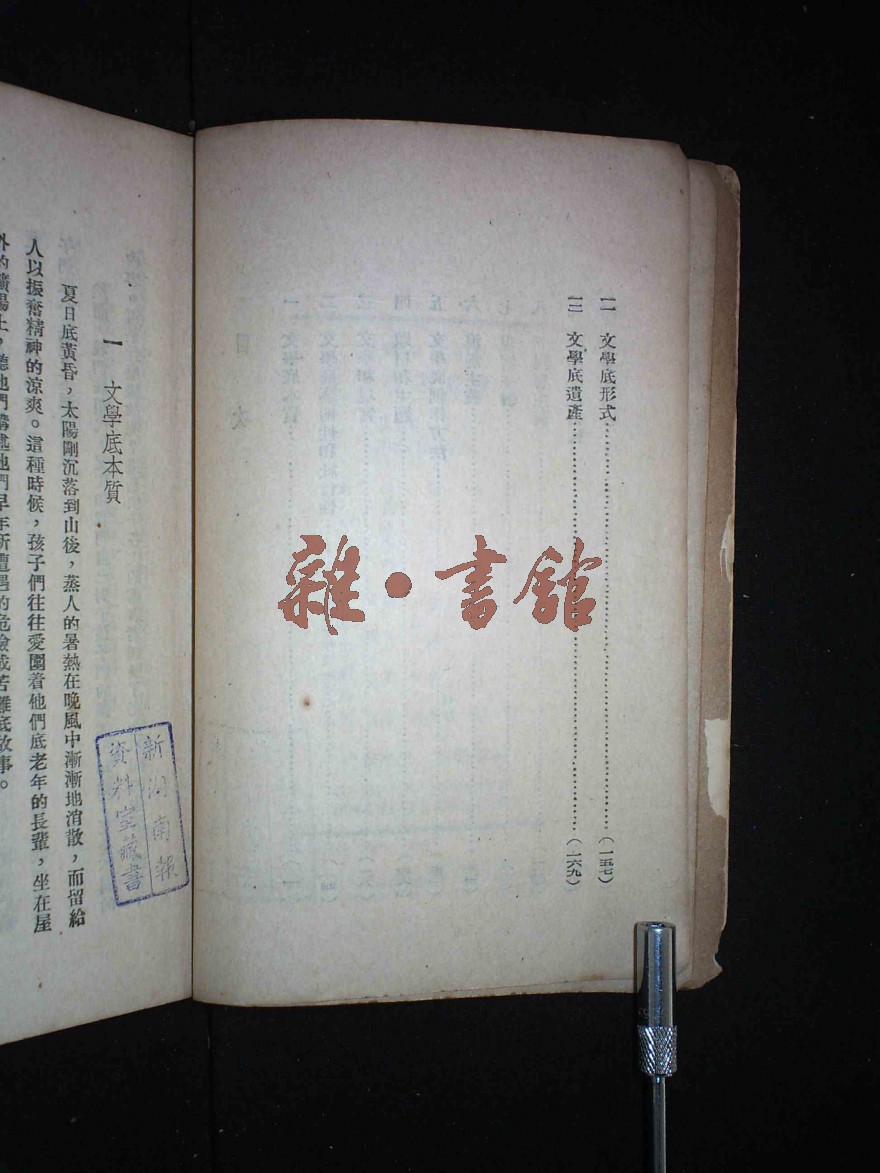 一一　文學底形式……………………（一五七）
一二　文學底遺產……………………（一六九）
雜·書館
一　文學底本質
夏日底黃昏，太陽剛沉落到山後，蒸人的暑熱在晚風中漸漸地消散，而留給
人以振奮精神的涼爽。這種時候，孩子們往往愛圍着他們底老年的長輩，坐在屋
外的曠場上，聽他們講述他們早年所遭遇的危險或苦難底故事。
新湖南報
資料室藏書